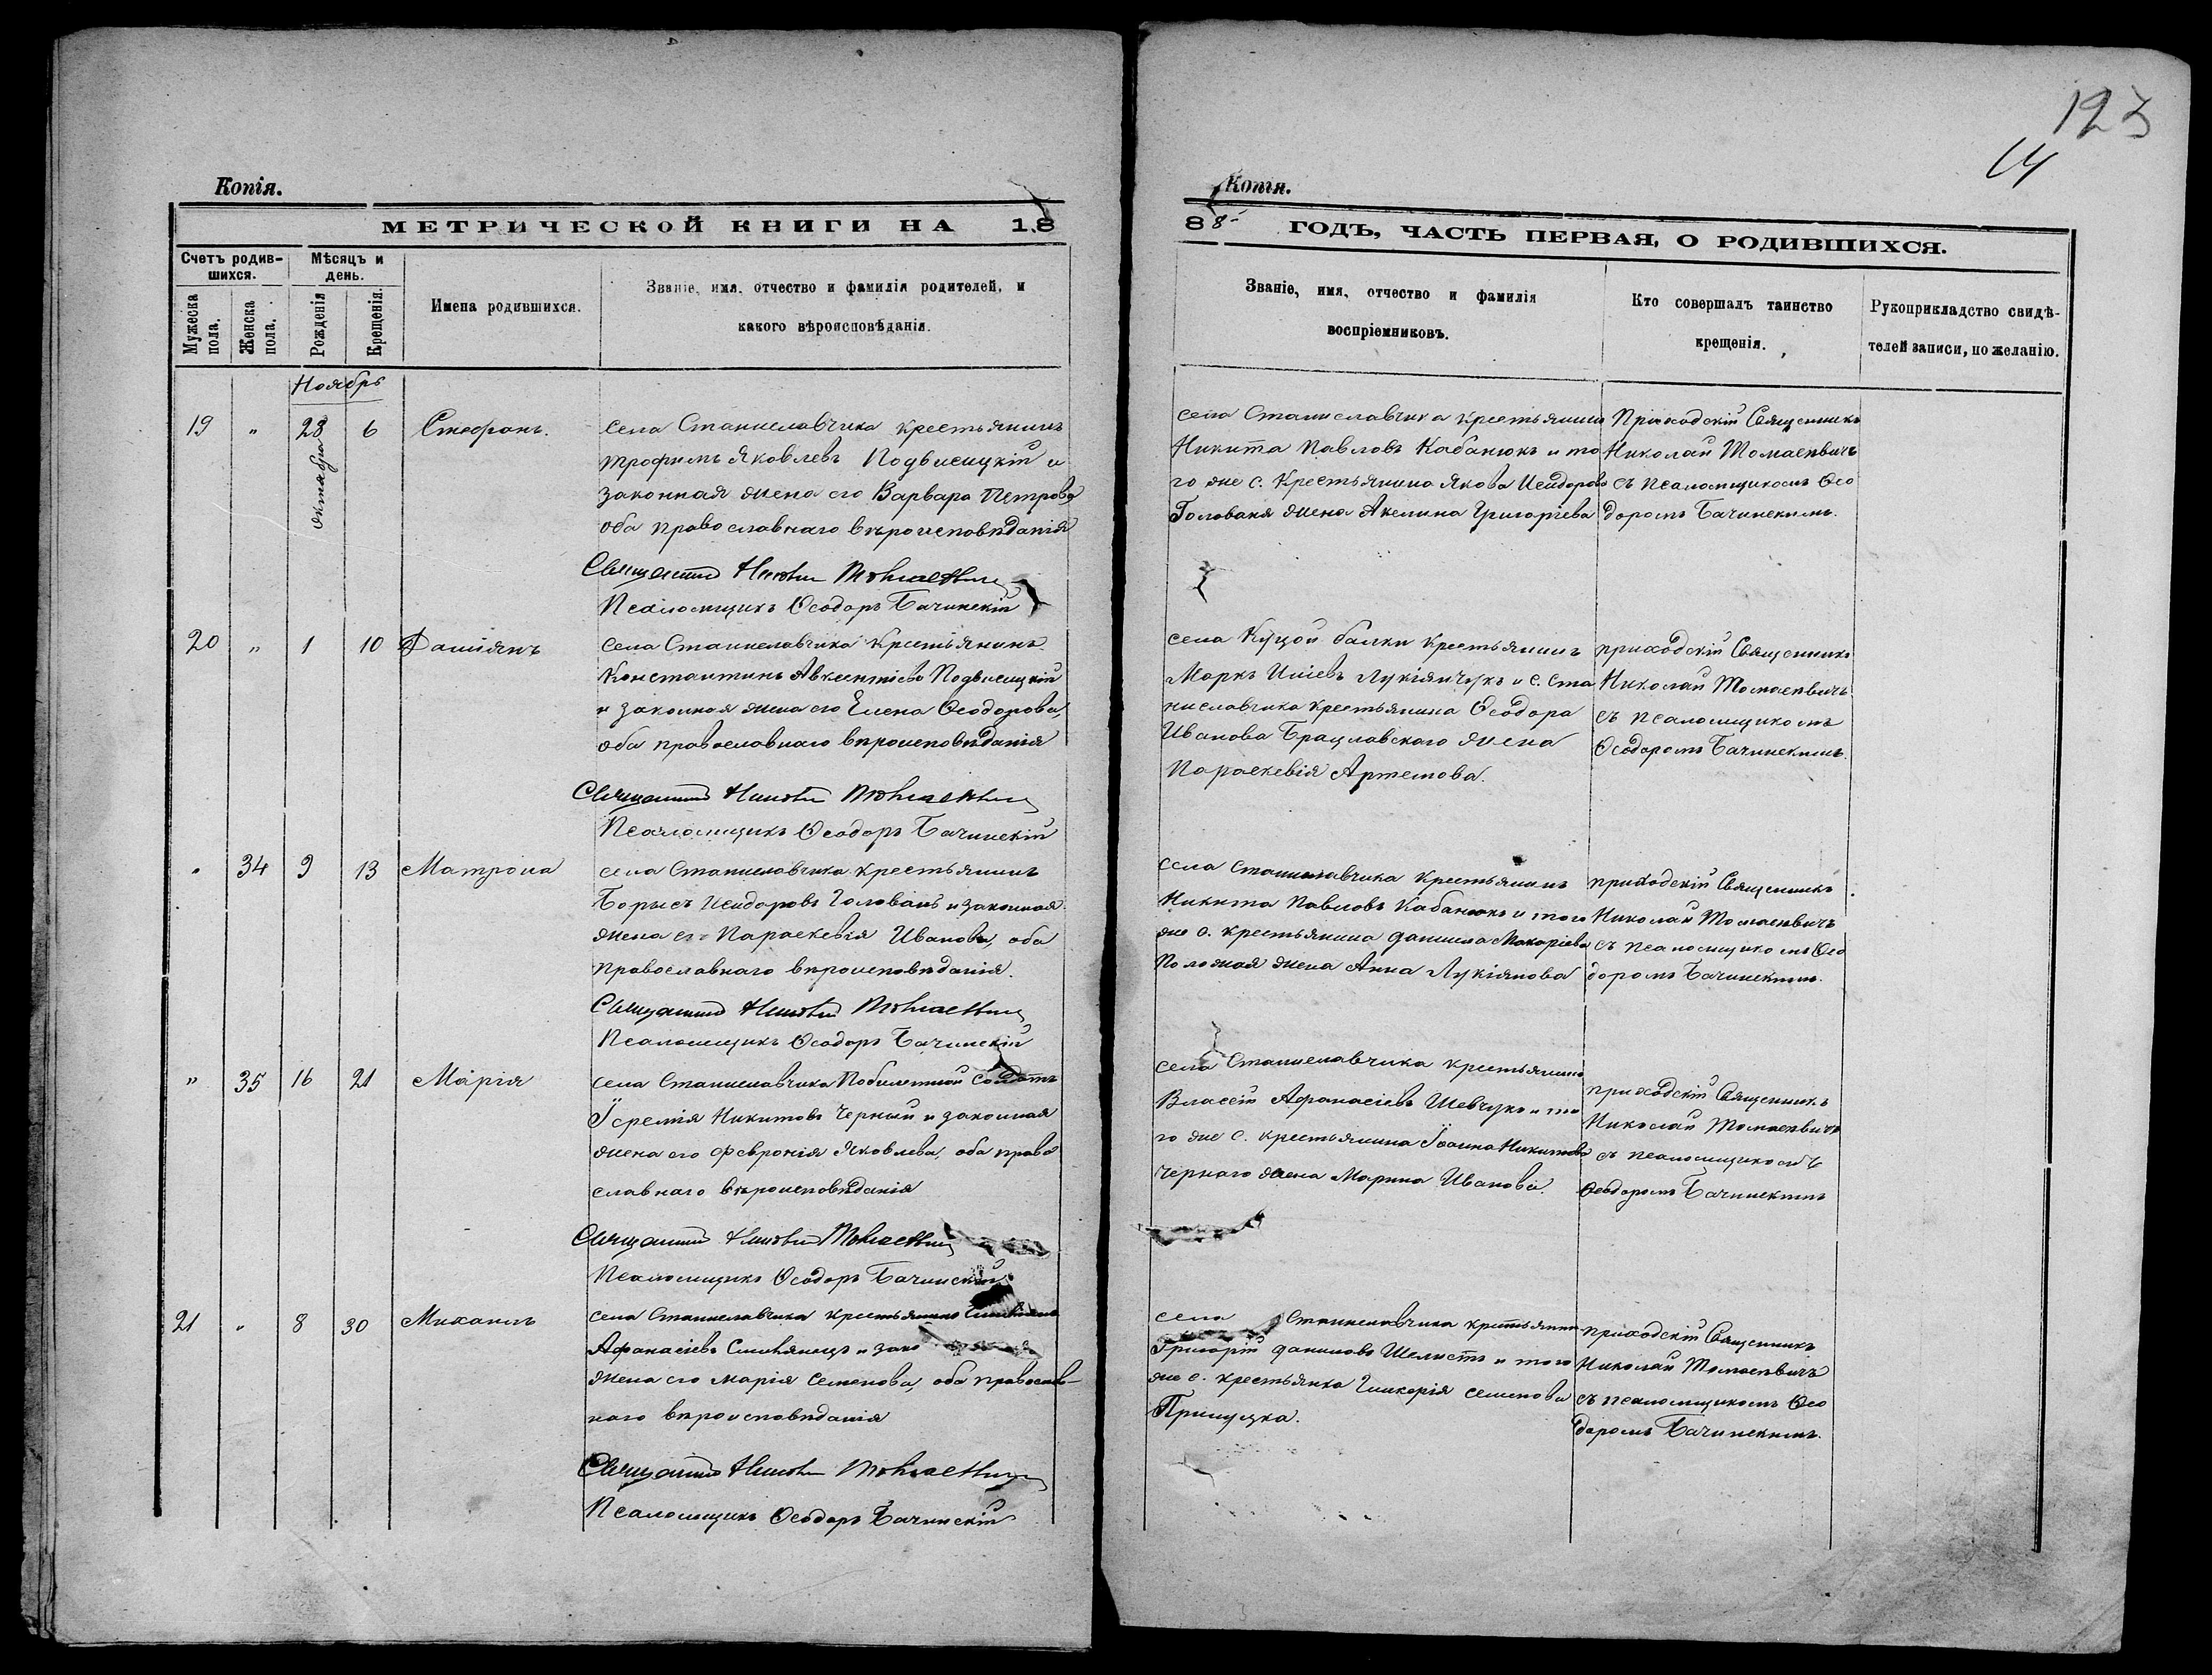 Копія.
МЕТРИЧЕСКОЙ КНИГИ НА 18
Счетъ родив-
шихся.
Мѣсяцъ и
день.
Мужеска
пола.
Женска
пола.
Рожденія
Крещенія.
Имена родившихся.
Званіе, имя, отчество и фамилія родителей, и
какого вѣроисповѣданія.
Ноябрь
19 " 28 6 Стефанъ.
октября
села Станиславчика крестьянинъ
Трофимъ Яковлевъ Подвисицкій и
законная жена его Варвара Петрова
оба православнаго вѣроисповѣданія
Священникъ Николай Томасевичъ
Псаломщикъ Ѳеодоръ Бачинскій
20 " 1 10 Даміянъ
села Станиславчика крестьянинъ
Константинъ Авксентіевъ Подвисицкій
и законная жена его Елена Ѳеодорова,
оба православнаго вѣроисповѣданія
Священникъ Николай Томасевичъ
Псаломщикъ Ѳеодоръ Бачинскій
" 34 9 13 Матрона
села Станиславчика крестьянинъ
Борысъ Исидоровъ Головань и законная
жена его Параскевія Иванова, оба
православнаго вѣроисповѣданія.
Священникъ Николай Томасевичъ
Псаломщикъ Ѳеодоръ Бачинскій
" 35 16 21 Марія
села Станиславчика Побилетный солдатъ
Іеремія Никитовъ Черный и законная
жена его Февронія Яковлева, оба право
славнаго вѣроисповѣданія
Священникъ Николай Томасевичъ
Псаломщикъ Ѳеодоръ Бачинскій
21 " 8 30 Михаилъ
села Станиславчика крестьянинъ
Афанасіевъ и зако
жена его Марія Семенова, оба православ-
наго вѣроисповѣданія
Священникъ Николай Томасевичъ
Псаломщикъ Ѳеодоръ Бачинскій
123
14
Копія.
88 ГОДЪ, ЧАСТЬ ПЕРВАЯ, О РОДИВШИХСЯ.
Званіе, имя, отчество и фамилія
воспріемниковъ.
Кто совершалъ таинство
крещенія.
Рукоприкладство свидѣ-
телей записи, по желанію.
села Станиславчика крестьянинъ
Никита Павловъ Кабанюкъ и то
го же с. крестьянина Якова Исидорова
Голованя жена Акелина Григоріева
Приходскій Священникъ
Николай Томасевичъ
съ псаломщикомъ Ѳео
доромъ Бачинскимъ.
села Куцой балки крестьянинъ
Маркъ Иліевъ Лукіянчукъ и с. Ста
ниславчика крестьянина Ѳеодора
Иванова Брацлавскаго жена
Параскевія Артемова.
приходскій Священникъ
Николай Томасевичъ
съ псаломщикомъ
Ѳеодоромъ Бачинскимъ.
села Станиславчика крестьянинъ
Никита Павловъ Кабанюкъ и того
же с. крестьянина Даніила Макаріева
жена Анна Лукіянова
приходскій Священникъ
Николай Томасевичъ
съ псаломщикомъ Ѳео
доромъ Бачинскимъ.
села Станиславчика крестьянинъ
Власій Афанасіевъ Шевчукъ и то
го же с. крестьянина Іоанна Никитова
Чернаго жена Марина Иванова.
приходскій Священникъ
Николай Томасевичъ
съ псаломщикомъ
Ѳеодоромъ Бачинскимъ
села Станиславчика крестьянинъ
Григорій Даниловъ Шелистъ и того
же с. крестьянка Гликерія Семенова
Прилуцка.
приходскій Священникъ
Николай Томасевичъ
съ псаломщикомъ Ѳео
доромъ Бачинскимъ.